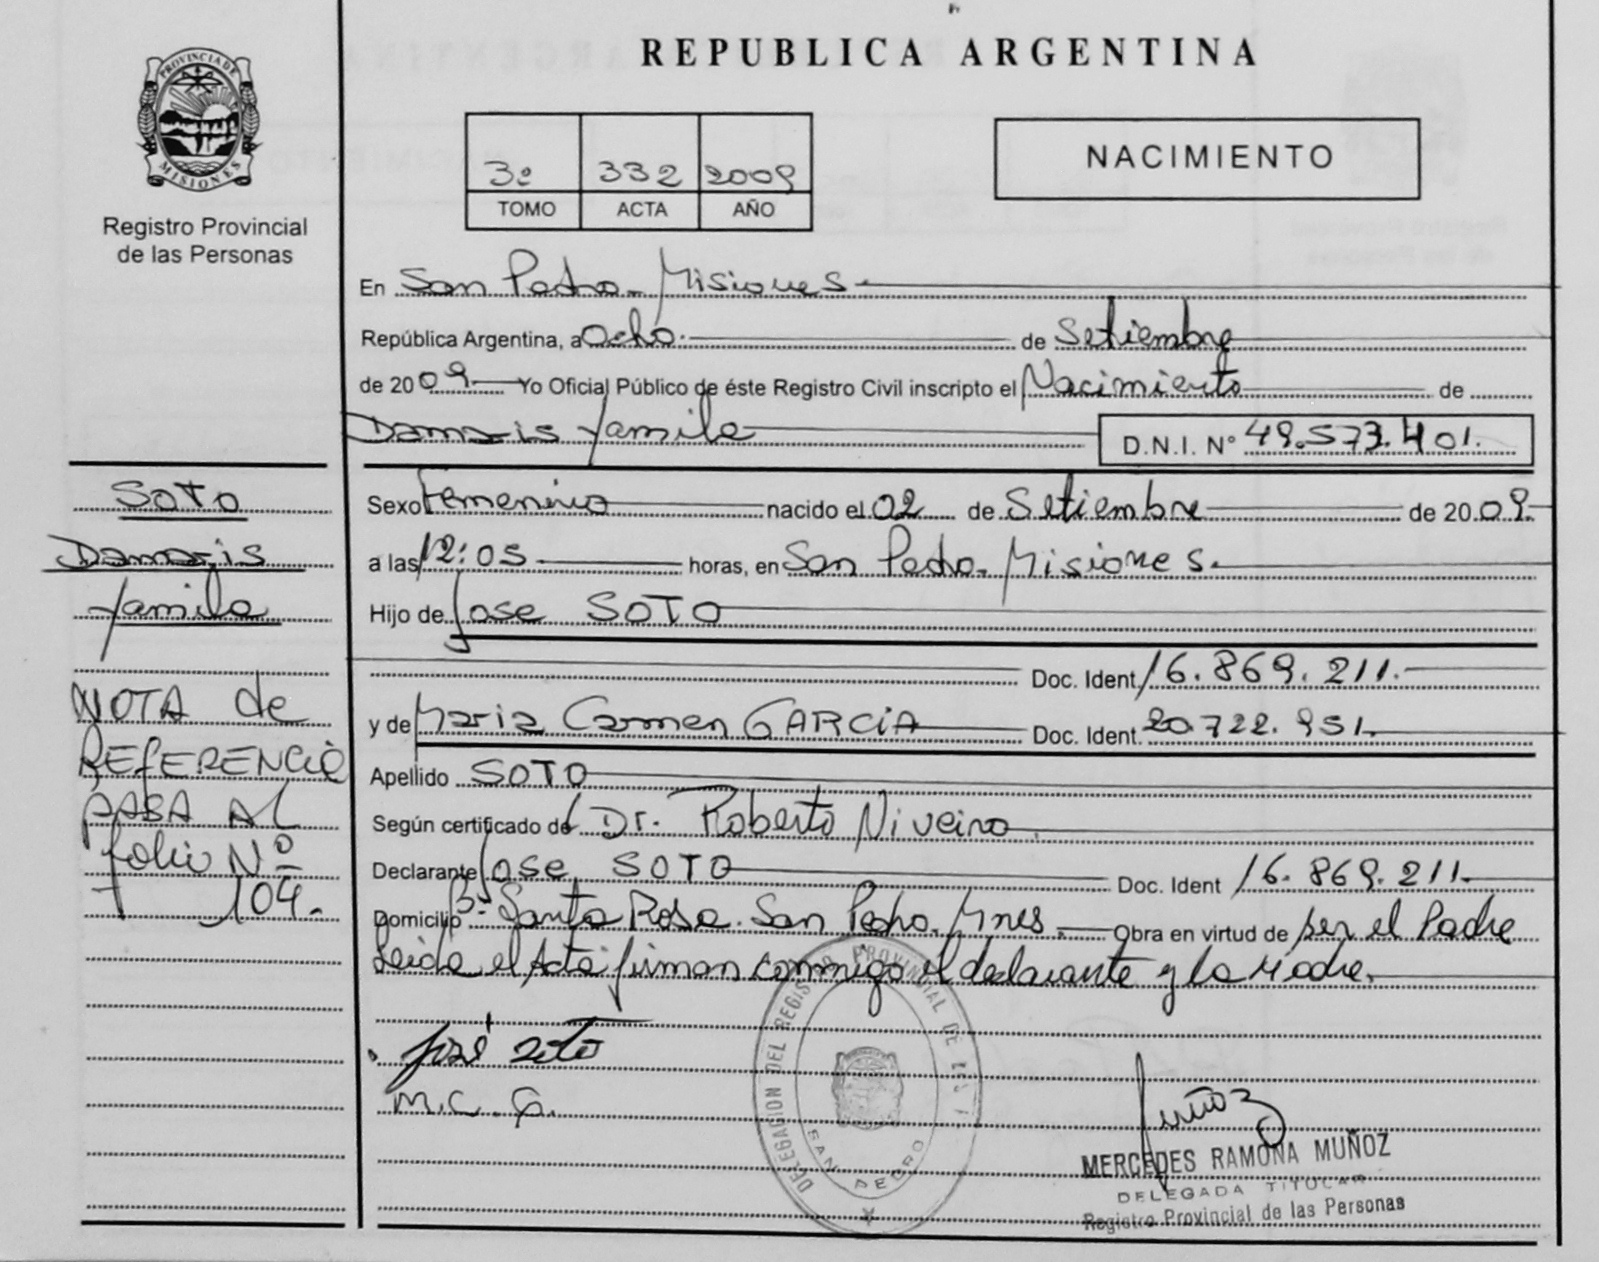 REPUBLICA ARGENTINA
PROVINCIA DE
MISIONES
Registro Provincial
de las Personas
3º 332 2009
TOMO ACTA AÑO
NACIMIENTO
En San Pedro - Misiones
República Argentina, a Ocho de Setiembre
de 2009. Yo Oficial Público de éste Registro Civil inscripto el Nacimiento de
Damaris Yamila D.N.I. Nº 49.573.401.
SOTO
Damaris
Yamila
NOTA de
REFERENCIA
PASA AL
folio Nº
104.
Sexo Femenino nacido el 02 de Setiembre de 2009.
a las 12:05 horas, en San Pedro - Misiones.
Hijo de Jose SOTO
Doc. Ident 16.869.211.
y de Maria Carmen GARCIA Doc. Ident. 20.722.951.
Apellido SOTO
Según certificado del Dr. Roberto Niveiro.
Declarante Jose SOTO Doc. Ident 16.869.211.
Domicilio Bº Santa Rosa. San Pedro. Mnes. Obra en virtud de ser el Padre
Leida el Acta firman conmigo el declarante y la Madre.
José Soto
M.C.G.
DELEGACION DEL REGISTRO PROVINCIAL DE
SAN PEDRO
Muñoz
MERCEDES RAMONA MUÑOZ
DELEGADA TITULAR
Registro Provincial de las Personas